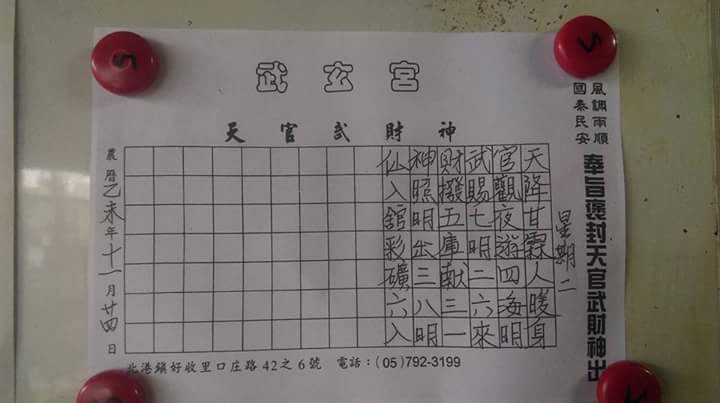 武玄宮
天官武財神
風調雨順
國泰民安
奉旨褒封天官武財神出
星期二
天降甘霖人暖身
官觀夜遊四海明
武賜七明二六來
財撥五庫獻三一
神照明出三八明
仙入館彩礦六入
農曆乙未年十一月廿四日
北港鎮好收里口庄路42之6號 電話:(05)792-3199